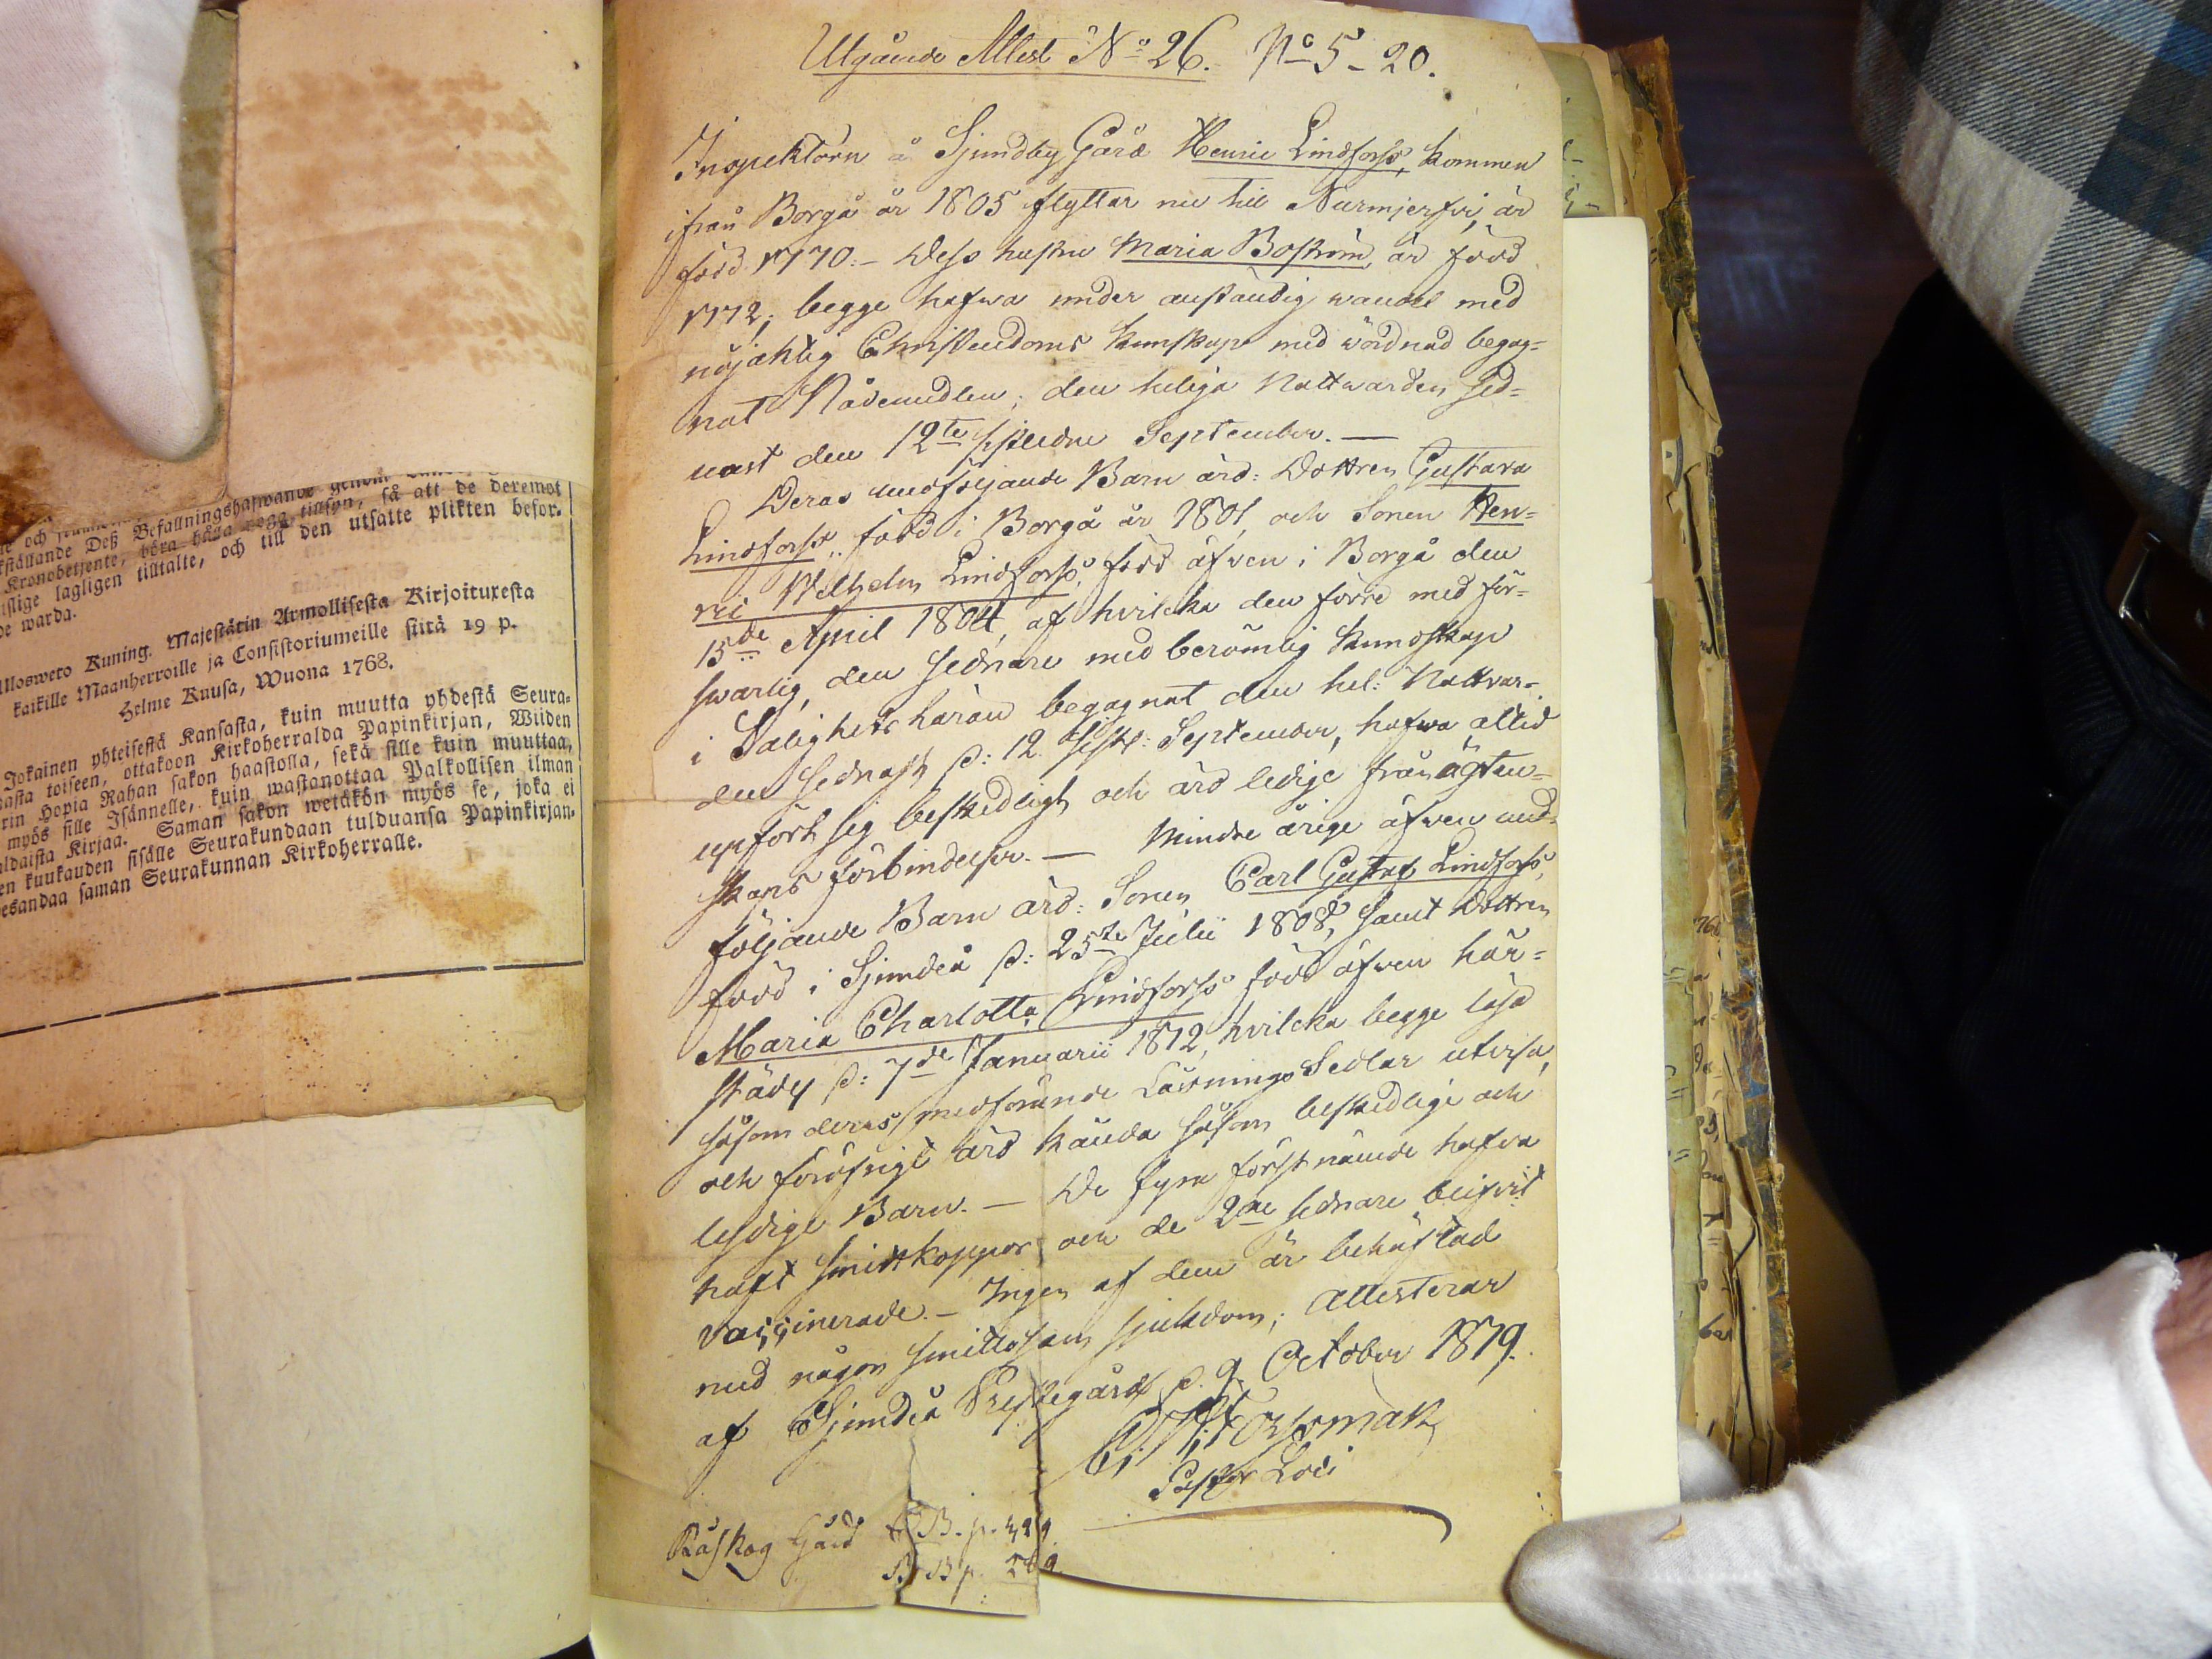 och
kställande Deß Befallningshafwande genom
Kronobetjente, böra hålla noga tillsyn, så att de deremot
islige lagligen tilltalte, och till den utsatte plikten befor-
de warda.
Ulosweto Kuning. Majestätin Armollisesta Kirjoituxesta
kaikille Maanherroille ja Consistoriumeille siitä 19 p.
Helme Kuusa, Wuona 1768.
Jokainen yhteisestä Kansasta, kuin muutta yhdestä Seura-
nasta toiseen, ottakoon Kirkoherralda Papinkirjan, Wiiden
rin Hopia Rahan sakon haastolla, sekä sille kuin muuttaa,
myös sille Isännelle, kuin wastanottaa Palkollisen ilman
aldaista Kirjaa. Saman sakon wetäkön myös se, joka ei
en kuukauden sisälle Seurakundaan tulduansa Papinkirjan-
esandaa saman Seurakunnan Kirkoherralle.
Utgående Attest No 26. No 5-20.
Inspektorn å Sjundby Gård Henric Lindforss, kommen
ifrån Borgå år 1805 flyttar nu til Nurmjerfvi, är
född 1770:- Dess hustru Maria Boström, är född
1772; begge hafwa under anständig wandel med
nöjaktig Christendoms kunskap med wördnad begag-
nat Nådemedlen; den heliga Nattwarden sed-
nast den 12te sistledne September. —
Deras medföljande Barn äro: Dottren Gustava
Lindforss, född i Borgå år 1801, och Sonen Hen-
ric Wilhelm Lindforss, född äfwen i Borgå den
15de April 1804, af hvilcka den förre med för-
swarlig, den sednare med berömlig kundskap
i Salighets Läran begagnat den hel: Nattvar-
den sednast d: 12 sistl: September, hafwa altid
upfört sig beskedligt, och äro ledige från ägten-
skaps förbindelser. — Mindre årige äfwen med-
följande Barn äro: Sonen Carl Gustaf Lindforss,
född i Sjundeå d: 25te Julii 1808, samt Dottren
Maria Charlotta Lindforss född äfwen här-
städes d: 7de Januarii 1812, hvilcka begge läsa
såsom deras medförande Läsnings Sedlar utvisa,
och föröfrigt äro kända såsom beskedlige och
lydige Barn. — De fyra förstnämde hafva
haft smittkoppor, och de 2ne sednare blifvit
vaccinerade. — Ingen af dem är behäftad
med någon smittosam sjukdom; attesterar
af Sjundeå Prestegård d. 9 October 1819.
Forsman
Pastor Loci
Råskog Gård B. p. 429
B B p.